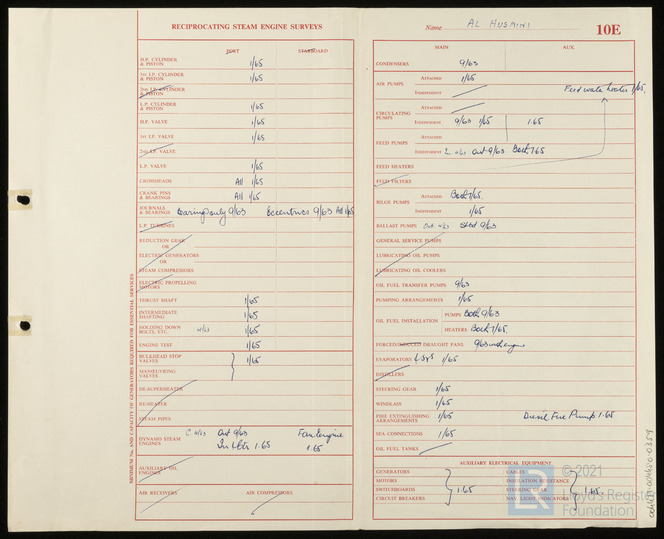 RECIPROCATING STEAM ENGINE SURVEYS
PORT STARBOARD
H.P. CYLINDER & PISTON 1/65
1st I.P. CYLINDER & PISTON 1/65
2nd I.P. CYLINDER & PISTON
L.P. CYLINDER & PISTON 1/65
H.P. VALVE 1/65
1st I.P. VALVE 1/65
2nd I.P. VALVE
L.P. VALVE 1/65
CROSSHEADS All 1/65
CRANK PINS & BEARINGS All 1/65
JOURNALS & BEARINGS bearing only 9/63 Eccentrics 9/63 All 1/65
L.P. TURBINES
REDUCTION GEAR
OR
ELECTRIC GENERATORS
OR
STEAM COMPRESSORS
ELECTRIC PROPELLING MOTORS
THRUST SHAFT 1/65
INTERMEDIATE SHAFTING 1/65
HOLDING DOWN BOLTS, ETC. 1/65
ENGINE TEST 1/65
BULKHEAD STOP VALVES 1/65
MANŒUVRING VALVES
DE-SUPERHEATER
RE-HEATER
STEAM PIPES
DYNAMO STEAM ENGINES Out 9/63 Fan engine
1.65 1.65
AUXILIARY OIL ENGINES
AIR RECEIVERS AIR COMPRESSORS
MINIMUM No. AND CAPACITY OF GENERATORS REQUIRED FOR ESSENTIAL SERVICES
Name AL HUSAINI 10E
MAIN AUX.
CONDENSERS 9/63
AIR PUMPS Attached 1/65
Independent Feed water heater 1/65.
CIRCULATING PUMPS Attached
Independent 9/63 1/65 1.65
FEED PUMPS Attached
Independent Out 9/63 Both 1.65
FEED HEATERS
FEED FILTERS
BILGE PUMPS Attached Both 1/65.
Independent 1/65
BALLAST PUMPS Stbd 9/63
GENERAL SERVICE PUMPS
LUBRICATING OIL PUMPS
LUBRICATING OIL COOLERS
OIL FUEL TRANSFER PUMPS 9/63
PUMPING ARRANGEMENTS 1/65
OIL FUEL INSTALLATION PUMPS Both 9/63
HEATERS Both 1/65.
FORCED/INDUCED DRAUGHT FANS 9/63 and engine
EVAPORATORS 1/65
DISTILLERS
STEERING GEAR 1/65
WINDLASS 1/65
FIRE EXTINGUISHING ARRANGEMENTS 1/65 Diesel Fire Pump 1.65
SEA CONNECTIONS 1/65
OIL FUEL TANKS
AUXILIARY ELECTRICAL EQUIPMENT
GENERATORS CABLES
MOTORS INSULATION RESISTANCE
SWITCHBOARDS 1.65 STEERING GEAR 1.65
CIRCUIT BREAKERS NAV. LIGHT INDICATORS
LR
© 2021
Lloyd's Register
Foundation